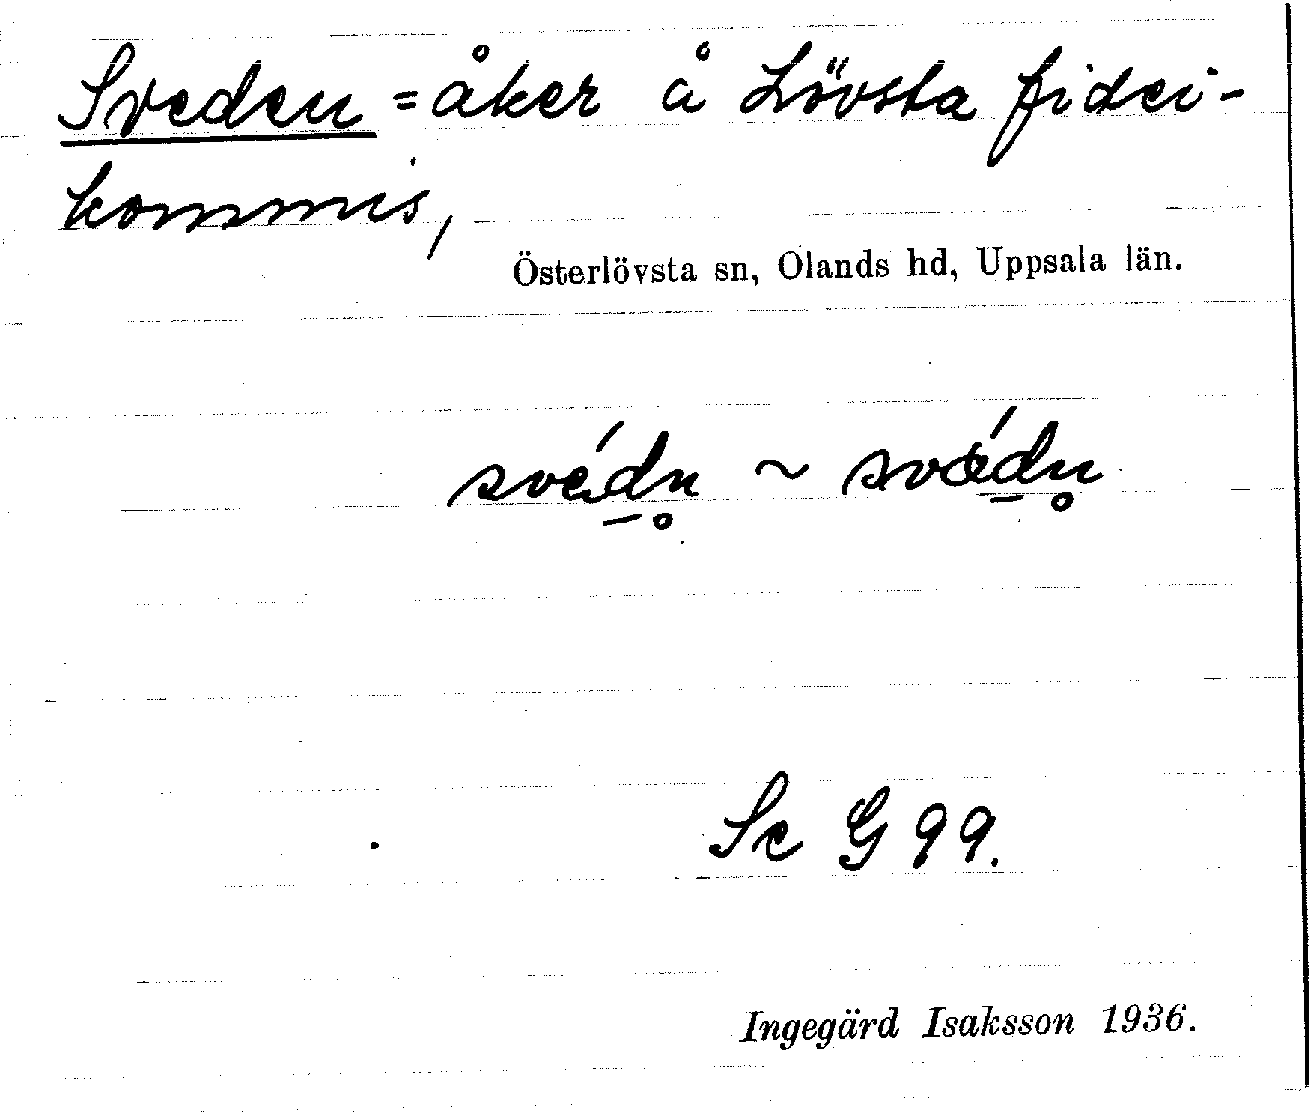 Sveden = åker å Lövsta fidei-
kommis,
Österlövsta sn, Olands hd, Uppsala län.
své̠dn̥ ~ svǽ̠dn̥
Se G 99.
Ingegärd Isaksson 1936.